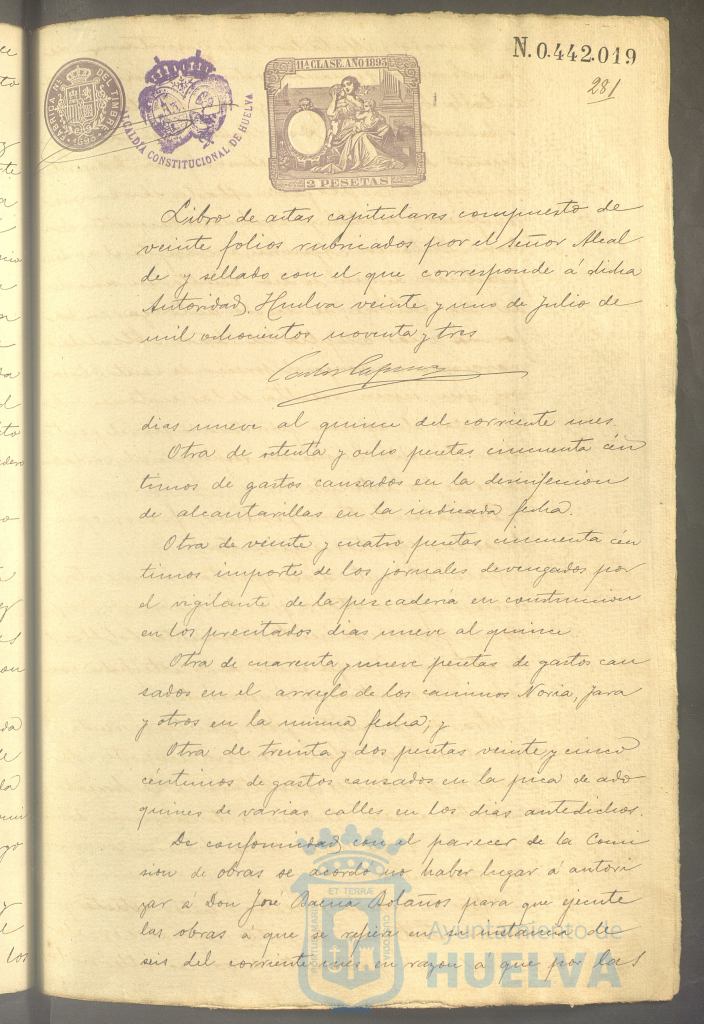 N.0.442.019
281
FABRICA NL DEL TIMBRE
1893
ALCALDIA CONSTITUCIONAL DE HUELVA
11ª CLASE. AÑO 1893
2 PESETAS
Libro de actas capitulares compuesto de
veinte folios rubricados por el Señor Alcal
de y sellado con el que corresponde á dicha
Autoridad. Huelva veinte y uno de Julio de
mil ochocientos noventa y tres
dias nueve al quince del corriente mes.
Otra de setenta y ocho pesetas cincuenta cén
timos de gastos causados en la desinfeccion
de alcantarillas en la indicada fecha.
Otra de veinte y cuatro pesetas cincuenta cén
timos importe de los jornales devengados por
el vigilante de la pescadería en construccion
en los precitados dias nueve al quince
Otra de cuarenta y nueve pesetas de gastos cau
sados en el arreglo de los caminos Noria, Jara
y otros en la misma fecha; y
Otra de treinta y dos pesetas veinte y cinco
céntimos de gastos causados en la pica de ado
quines de varias calles en los dias antedichos.
De conformidad con el parecer de la Comi
sion de obras se acordó no haber lugar á autori
zar á Don José Baena Bolaños para que ejecute
las obras á que se refiere en su instancia de
seis del corriente mes en razon á que por las
Ayuntamiento de
HUELVA